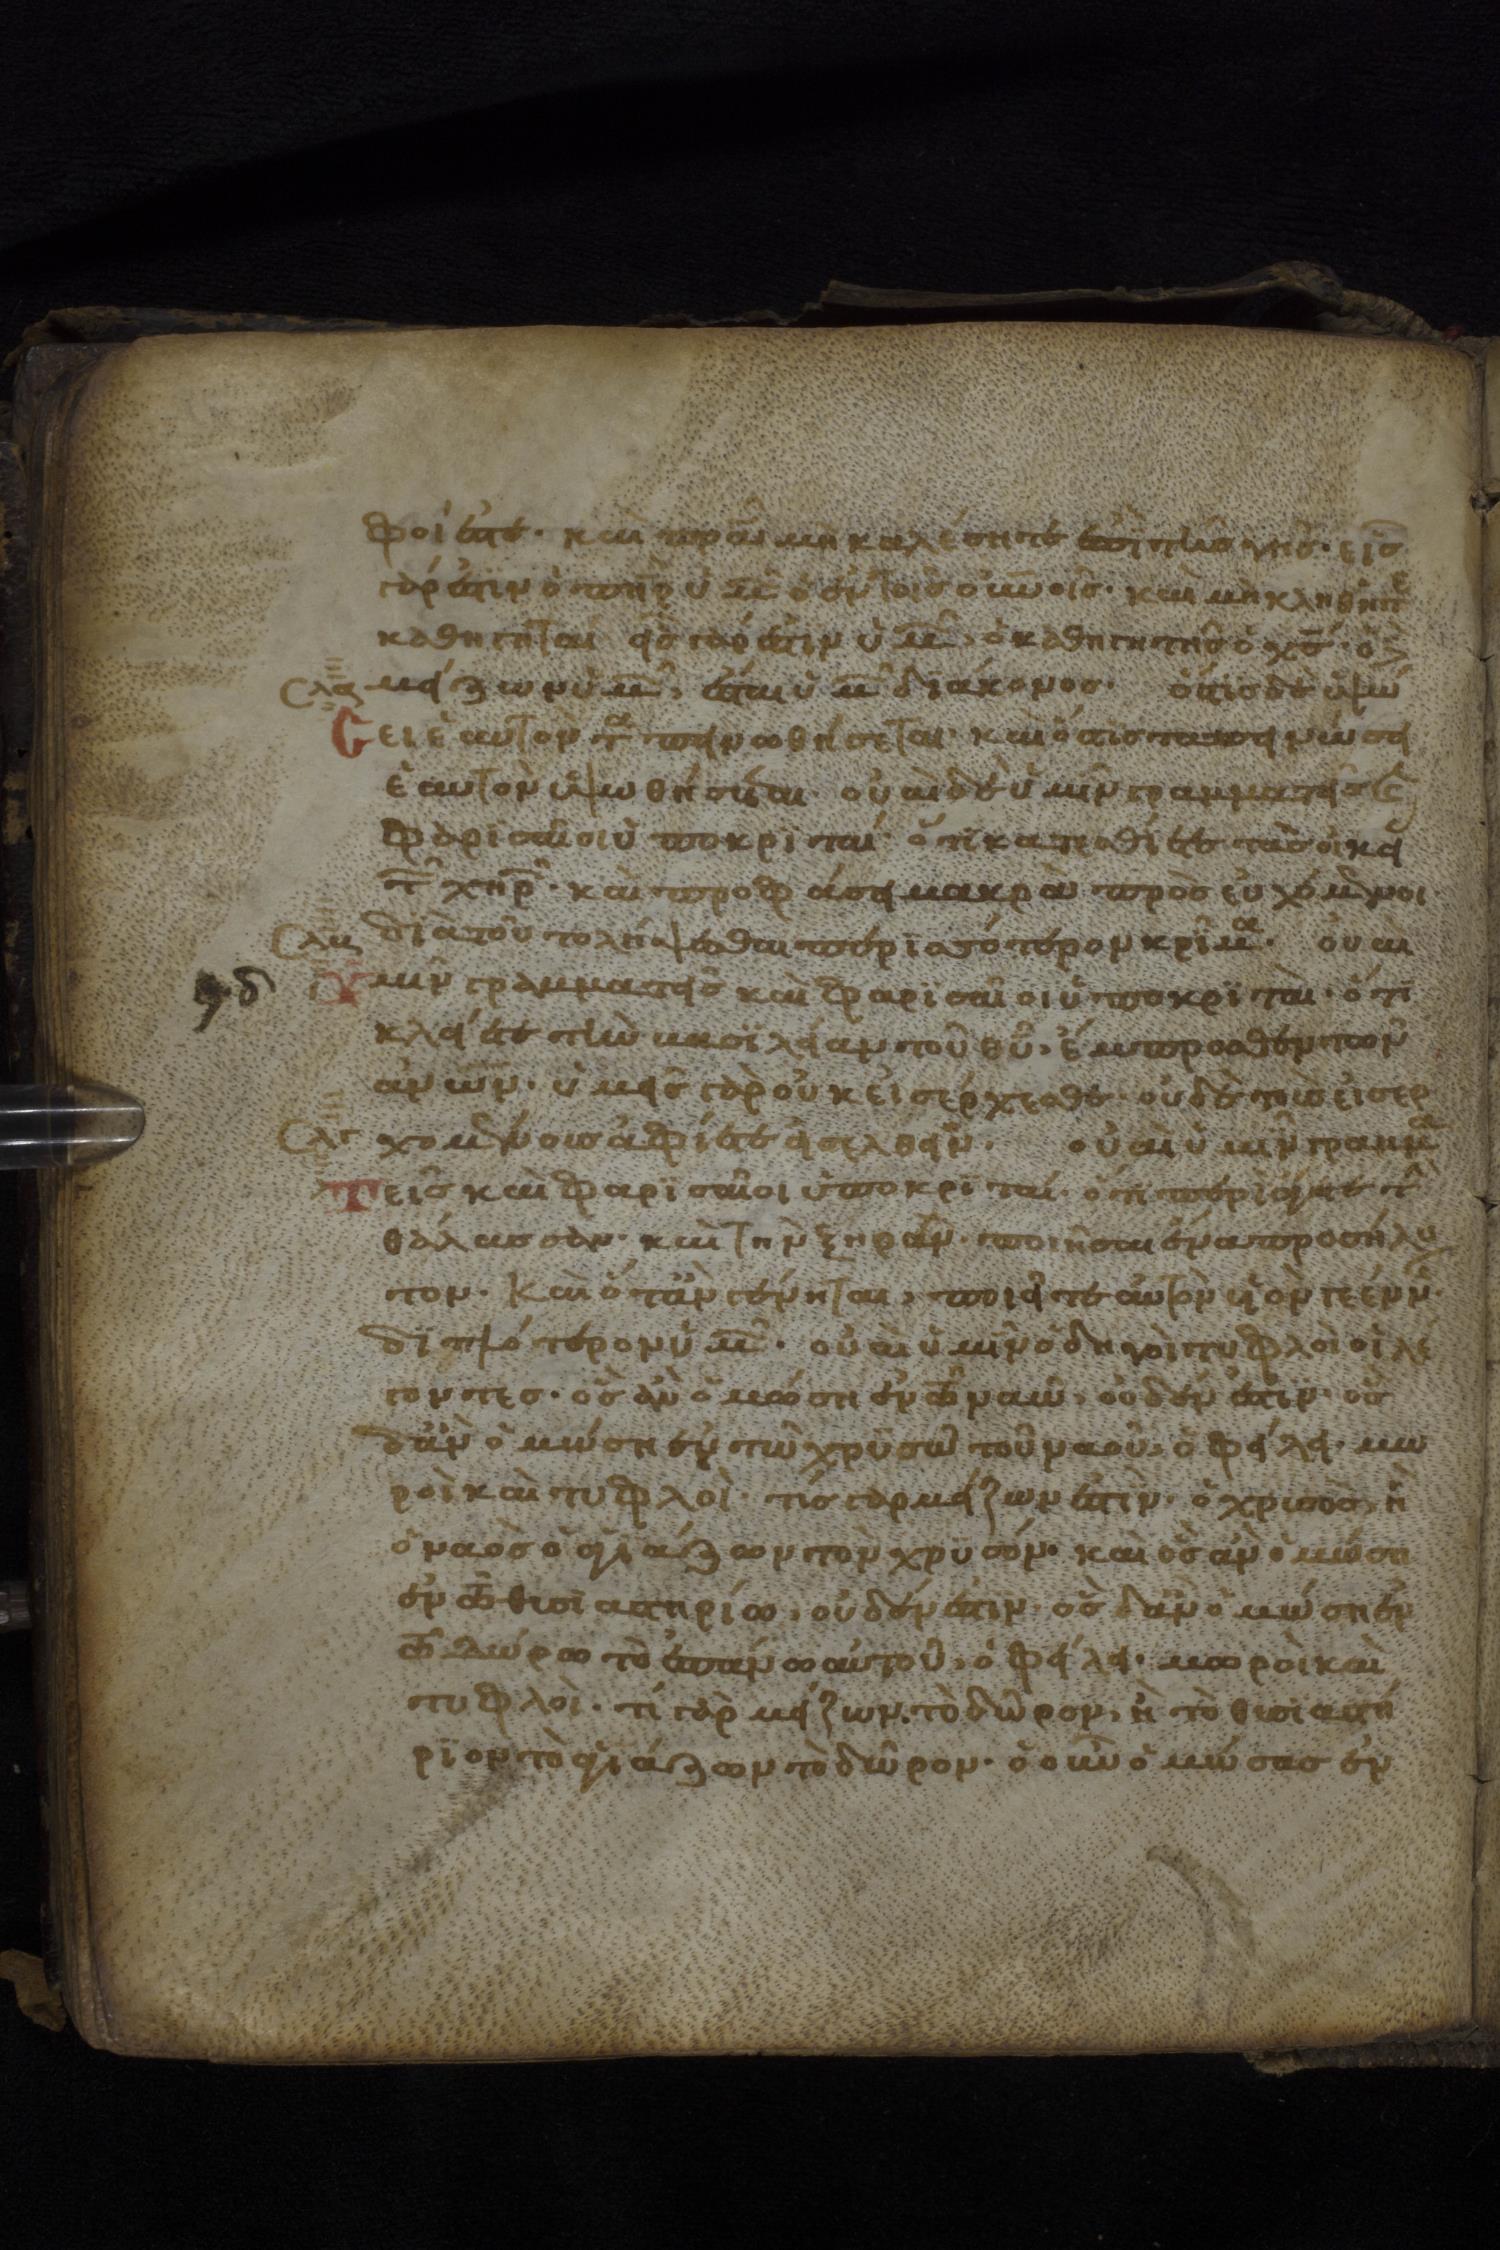 φοί ἐστε· καὶ πρα μὴ καλέσητε ἐπὶ τῆς γῆς· εἷς
γάρ ἐστιν ὁ πηρ ὑμ ὁ ἐν τοῖς οὐνοις· καὶ μὴ κληθῆτε
καθηγηταί εἷς γάρ ἐστιν ὑμ, ὁ καθηγητὴς ὁ χς· ὁ δὲ
σλα μείζων ὑμ, ἔσται ὑμ διάκονος· ὅστις δὲ ὑψώ
σει ἑαυτὸν ταπεινωθήσεται· καὶ ὅστις ταπεινώσει
ἑαυτὸν ὑψωθήσεται· οὐαὶ δὲ ὑμῖν γραμματεῖς καὶ
φαρισαῖοι ὑποκριταί· ὅτι κατεσθίετε τὰς οἰκί
τῶν χηρ· καὶ προφάσει μακρὰ προσευχόμενοι·
διὰ τοῦτο λήψεσθαι περισσότερον κρίμα· οὐαὶ
ϟδ ὑμῖν γραμματεῖς καὶ φαρισαῖοι ὑποκριταί· ὅτι
κλείετε τὴν βασιλείαν τοῦ θυ, ἔμπροσθεν τῶν
ανων· ὑμεῖς γὰρ οὐκ εἰσέρχεσθε· οὐδὲ τοὺς εἰσερ
σλγ χομένους ἀφίετε εἰσελθεῖν· οὐαὶ ὑμῖν γραμμα
τεῖς καὶ φαρισαῖοι ὑποκριταί· ὅτι περιάγετε τὴν
θάλασσαν· καὶ τὴν ξηράν· ποιῆσαι ἕνα προσήλυ
τον· καὶ ὅταν γένηται, ποιεῖτε αὐτὸν υἱὸν γεένν·
διπλότερον ὑμ· οὐαὶ ὑμῖν ὁδηγοὶ τυφλοὶ οἱ λέ
γοντες· ὃς ἂν ὀμώση ἐν τῶ ναῶ, οὐδέν ἐστιν· ὃς
δἂν ὀμώση ἐν τῶ χρυσῶ τοῦ ναοῦ, ὀφείλει· μω
ροὶ καὶ τυφλοί· τίς γὰρ μείζων ἐστίν· ὁ χρυσὸς, ἢ
ὁ ναὸς ὁ ἁγιάζων τὸν χρυσόν· καὶ ὃς ἂν ὀμώση
ἐν τῶ θυσιαστηρίω, οὐδέν ἐστιν· ὃς δἂν ὀμώση ἐν
τῶ δώρω τὸ ἐπάνω αὐτοῦ, ὀφείλει· μωροὶ καὶ
τυφλοί· τί γὰρ μείζων· τὸ δῶρον, ἢ τὸ θυσιαστή
ριον τὸ ἁγιάζων τὸ δῶρον· ὁ οὖν ὀμώσας ἐν